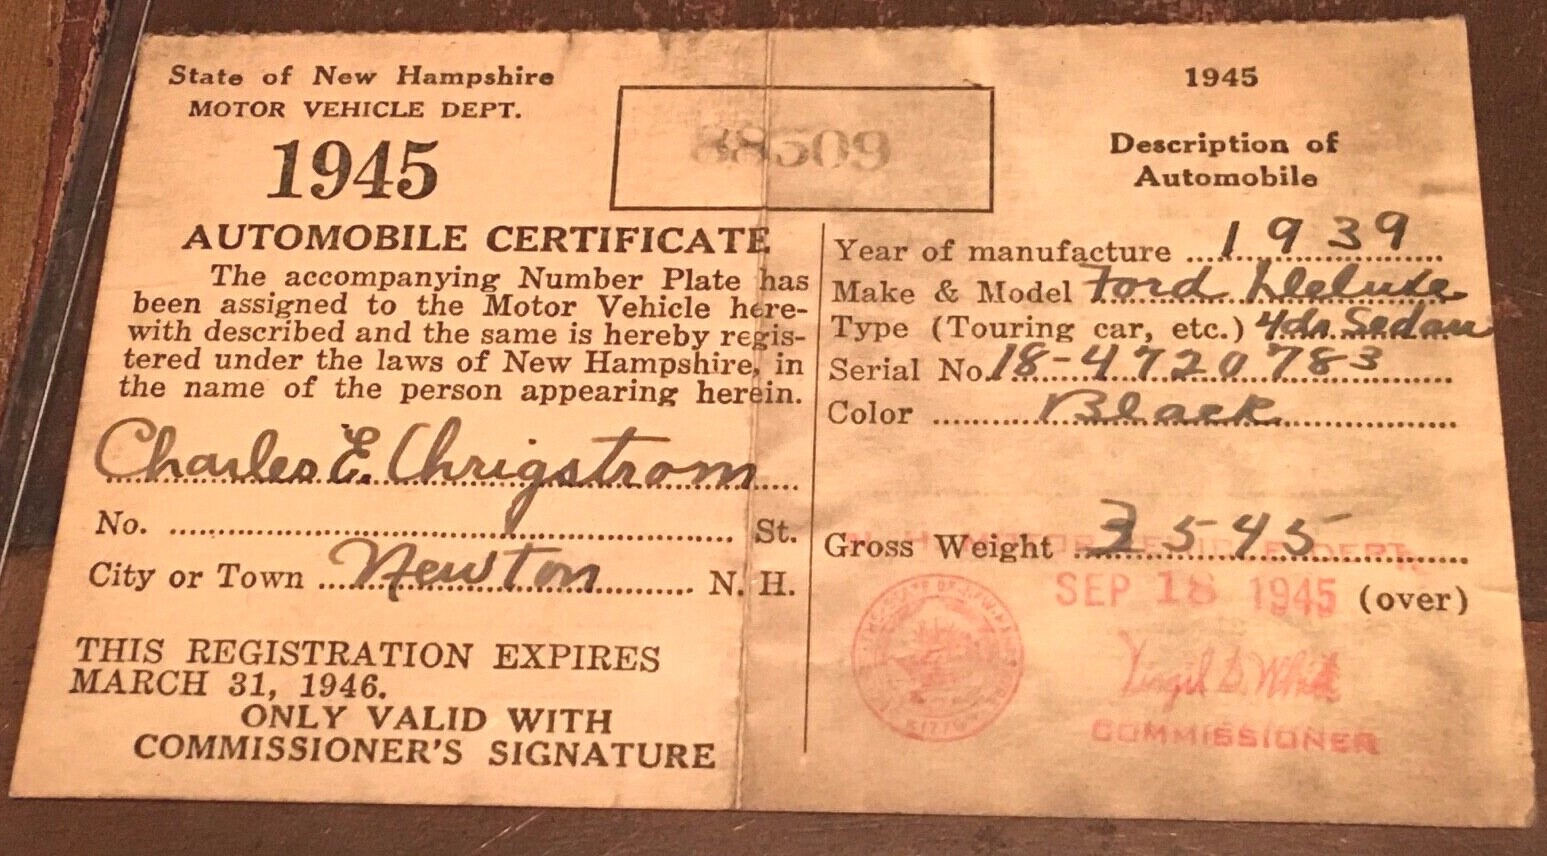 State of New Hampshire
MOTOR VEHICLE DEPT.
1945
AUTOMOBILE CERTIFICATE
The accompanying Number Plate has
been assigned to the Motor Vehicle here-
with described and the same is hereby regis-
tered under the laws of New Hampshire, in
the name of the person appearing herein.
Charles E. Chrigstrom
No. St.
City or Town Newton N. H.
THIS REGISTRATION EXPIRES
MARCH 31, 1946.
ONLY VALID WITH
COMMISSIONER'S SIGNATURE
88509
1945
Description of
Automobile
Year of manufacture 1939
Make & Model Ford Deluxe
Type (Touring car, etc.) 4dr. Sedan
Serial No. 18-4720783
Color Black
Gross Weight 3545
SEP 18 1945 (over)
Virgil D. White
COMMISSIONER